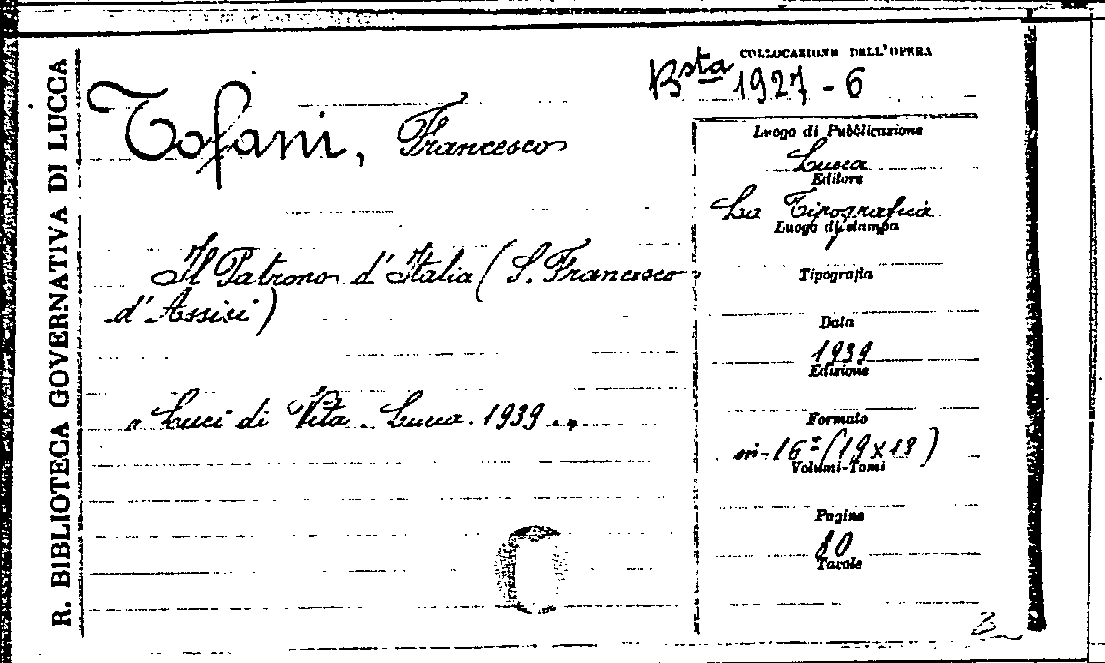 R. BIBLIOTECA GOVERNATIVA DI LUCCA
COLLOCAZIONE DELL'OPERA
Bsta 1927 - 6
Tofani, Francesco
Il Patrono d'Italia (S. Francesco
d'Assisi)
"Luci di Vita. Lucca. 1939."
Luogo di Pubblicazione
Lucca
Editore
La Tipografia
Luogo di stampa
Tipografia
Data
1939
Edizione
Formato
in-16° (19x13)
Volumi-Tomi
Pagine
80
Tavole